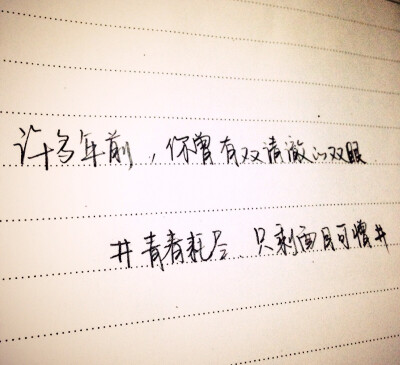 许多年前，你曾有双清澈的双眼
#青春耗尽、只剩面目可憎#